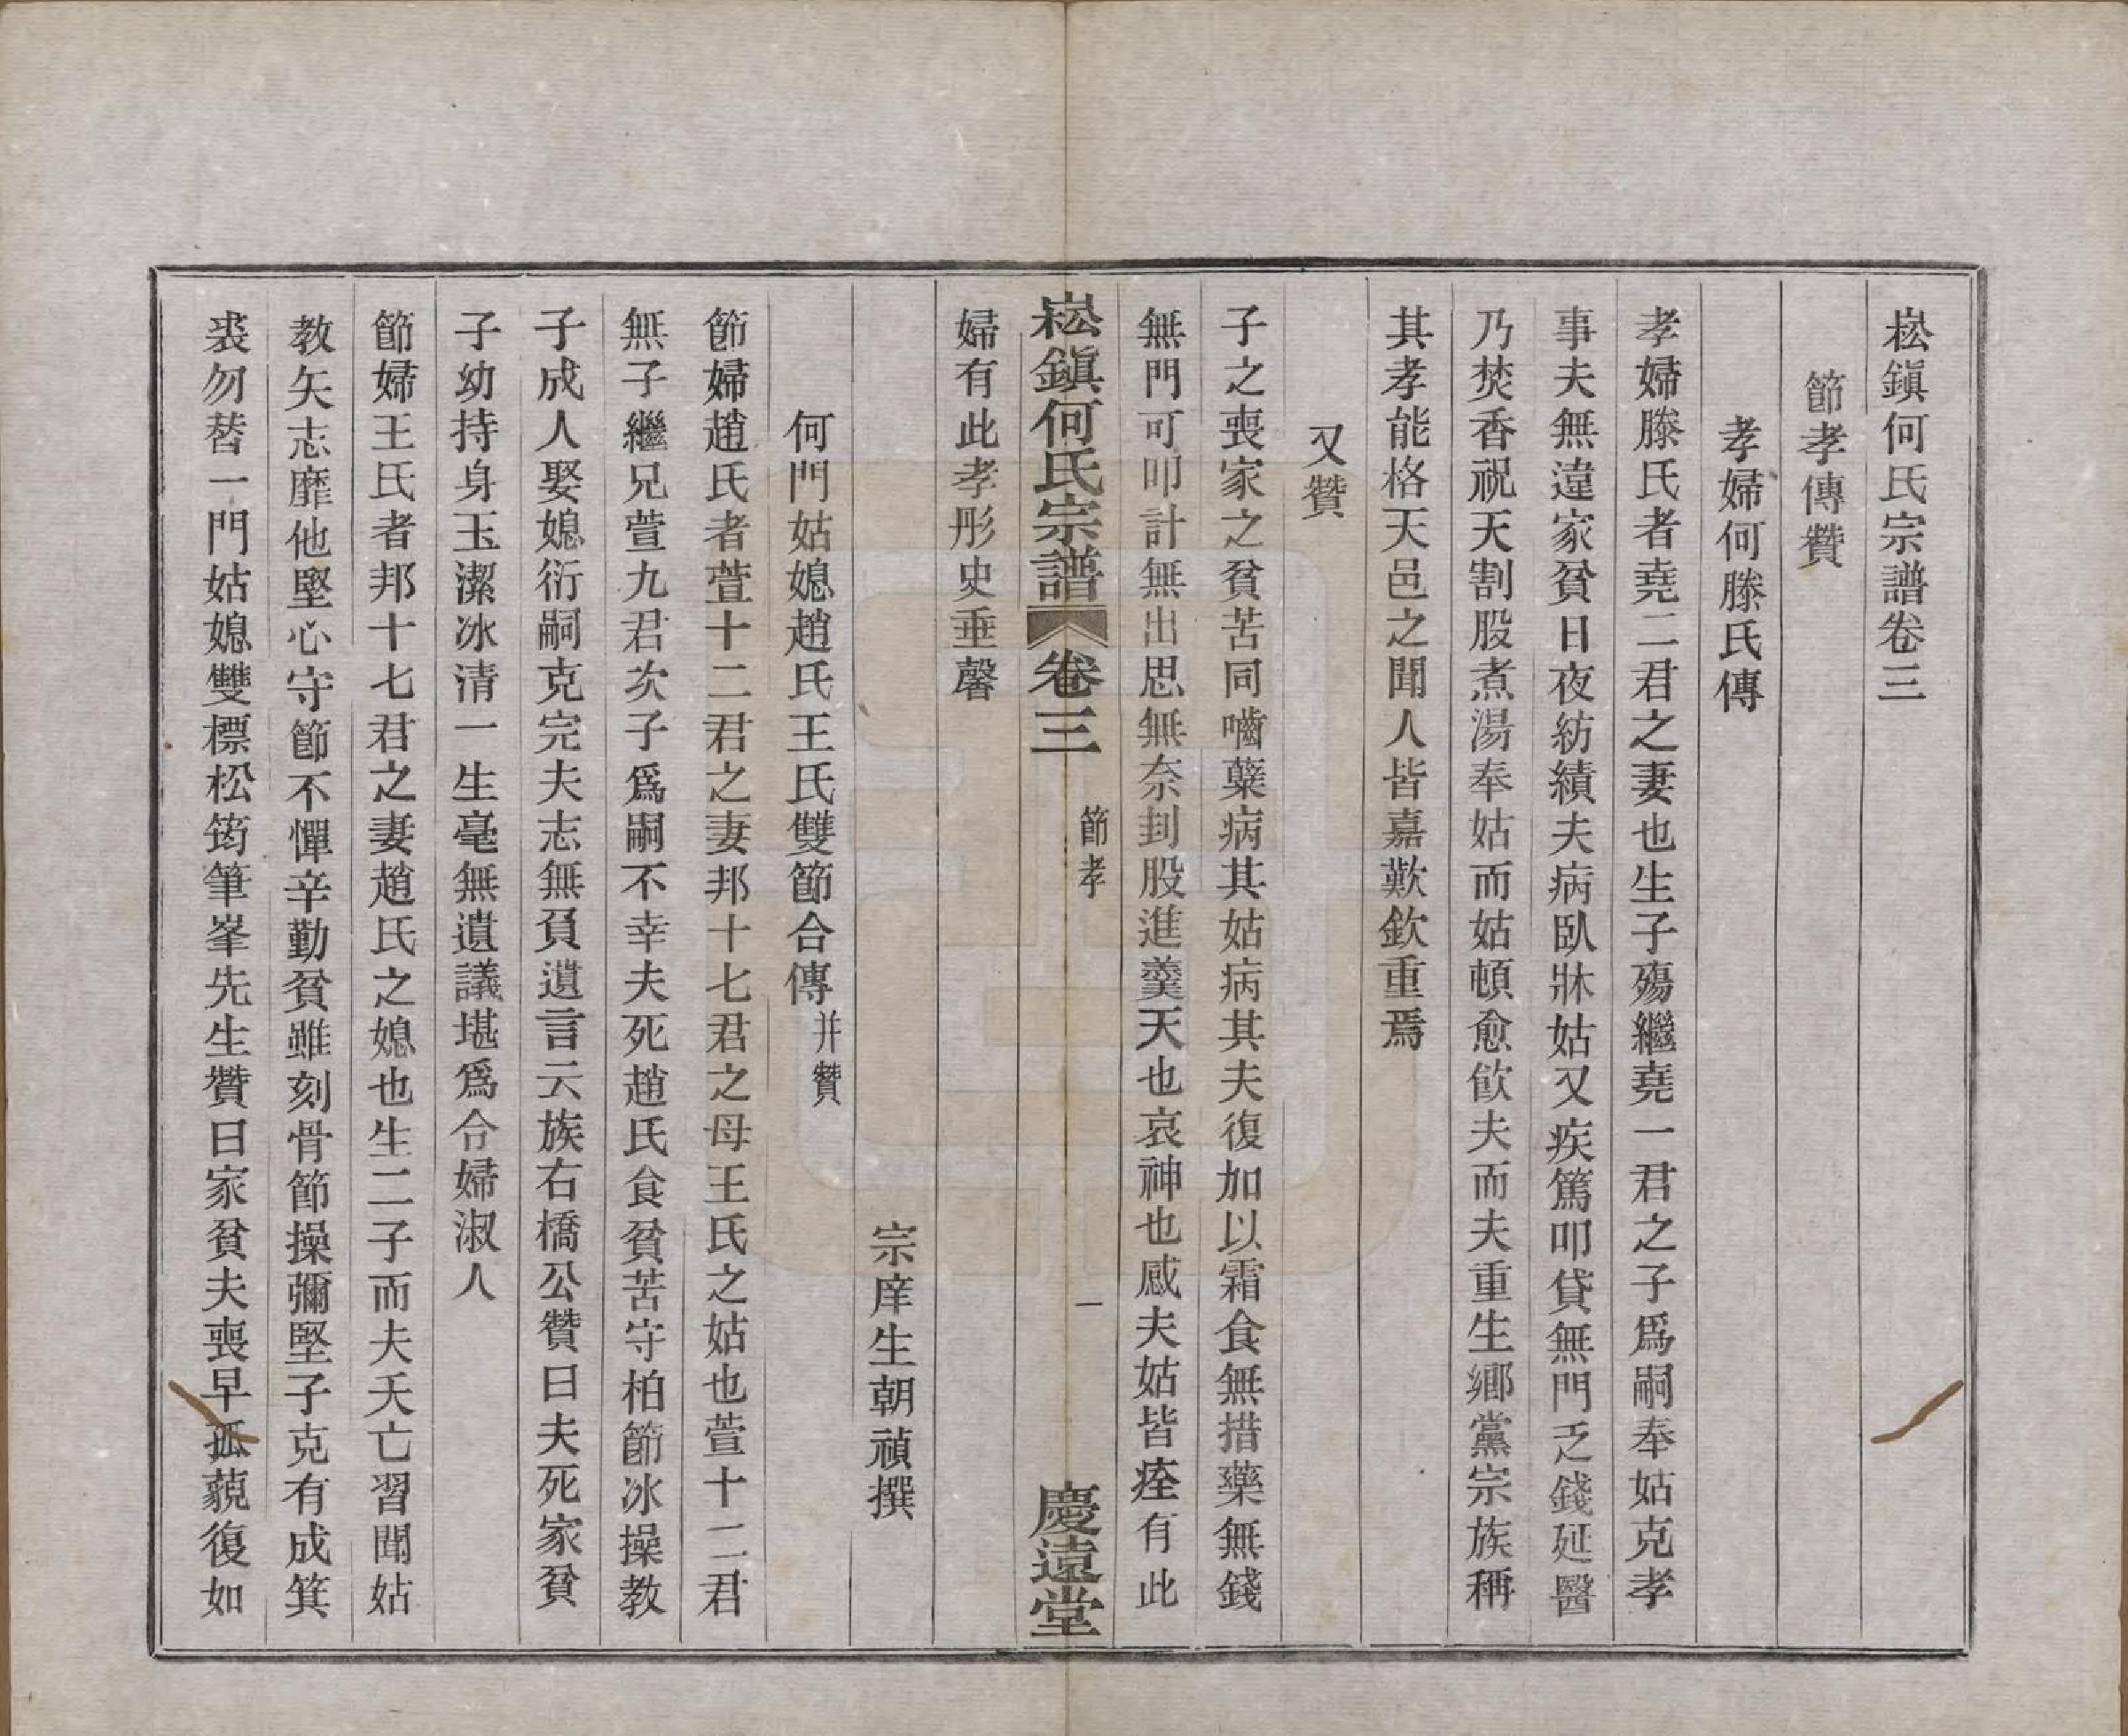 崧鎭何氏宗譜卷三
節孝傳贊
孝婦何滕氏傳
孝婦滕氏者堯二君之妻也生子殤繼堯一君之子爲嗣奉姑克孝
事夫無違家貧日夜紡績夫病臥牀姑又疾篤叩貸無門乏錢延醫
乃焚香祝天割股煮湯奉姑而姑頓愈飮夫而夫重生鄉黨宗族稱
其孝能格天邑之聞人皆嘉歎欽重焉
又贊
子之喪家之貧苦同嚙蘖病其姑病其夫復加以霜食無措藥無錢
無門可叩計無出思無奈刲股進羹天也哀神也感夫姑皆痊有此
崧鎭何氏宗譜 卷三 節孝 一 慶遠堂
婦有此孝彤史垂馨
宗庠生朝禎撰
何門姑媳趙氏王氏雙節合傳并贊
節婦趙氏者萱十二君之妻邦十七君之母王氏之姑也萱十二君
無子繼兄萱九君次子爲嗣不幸夫死趙氏食貧苦守柏節冰操教
子成人娶媳衍嗣克完夫志無負遺言云族右橋公贊曰夫死家貧
子幼持身玉潔冰清一生毫無遺議堪爲合婦淑人
節婦王氏者邦十七君之妻趙氏之媳也生二子而夫夭亡習聞姑
教矢志靡他堅心守節不憚辛勤貧雖刻骨節操彌堅子克有成箕
裘勿替一門姑媳雙標松筠筆峯先生贊曰家貧夫喪早孤藐復如